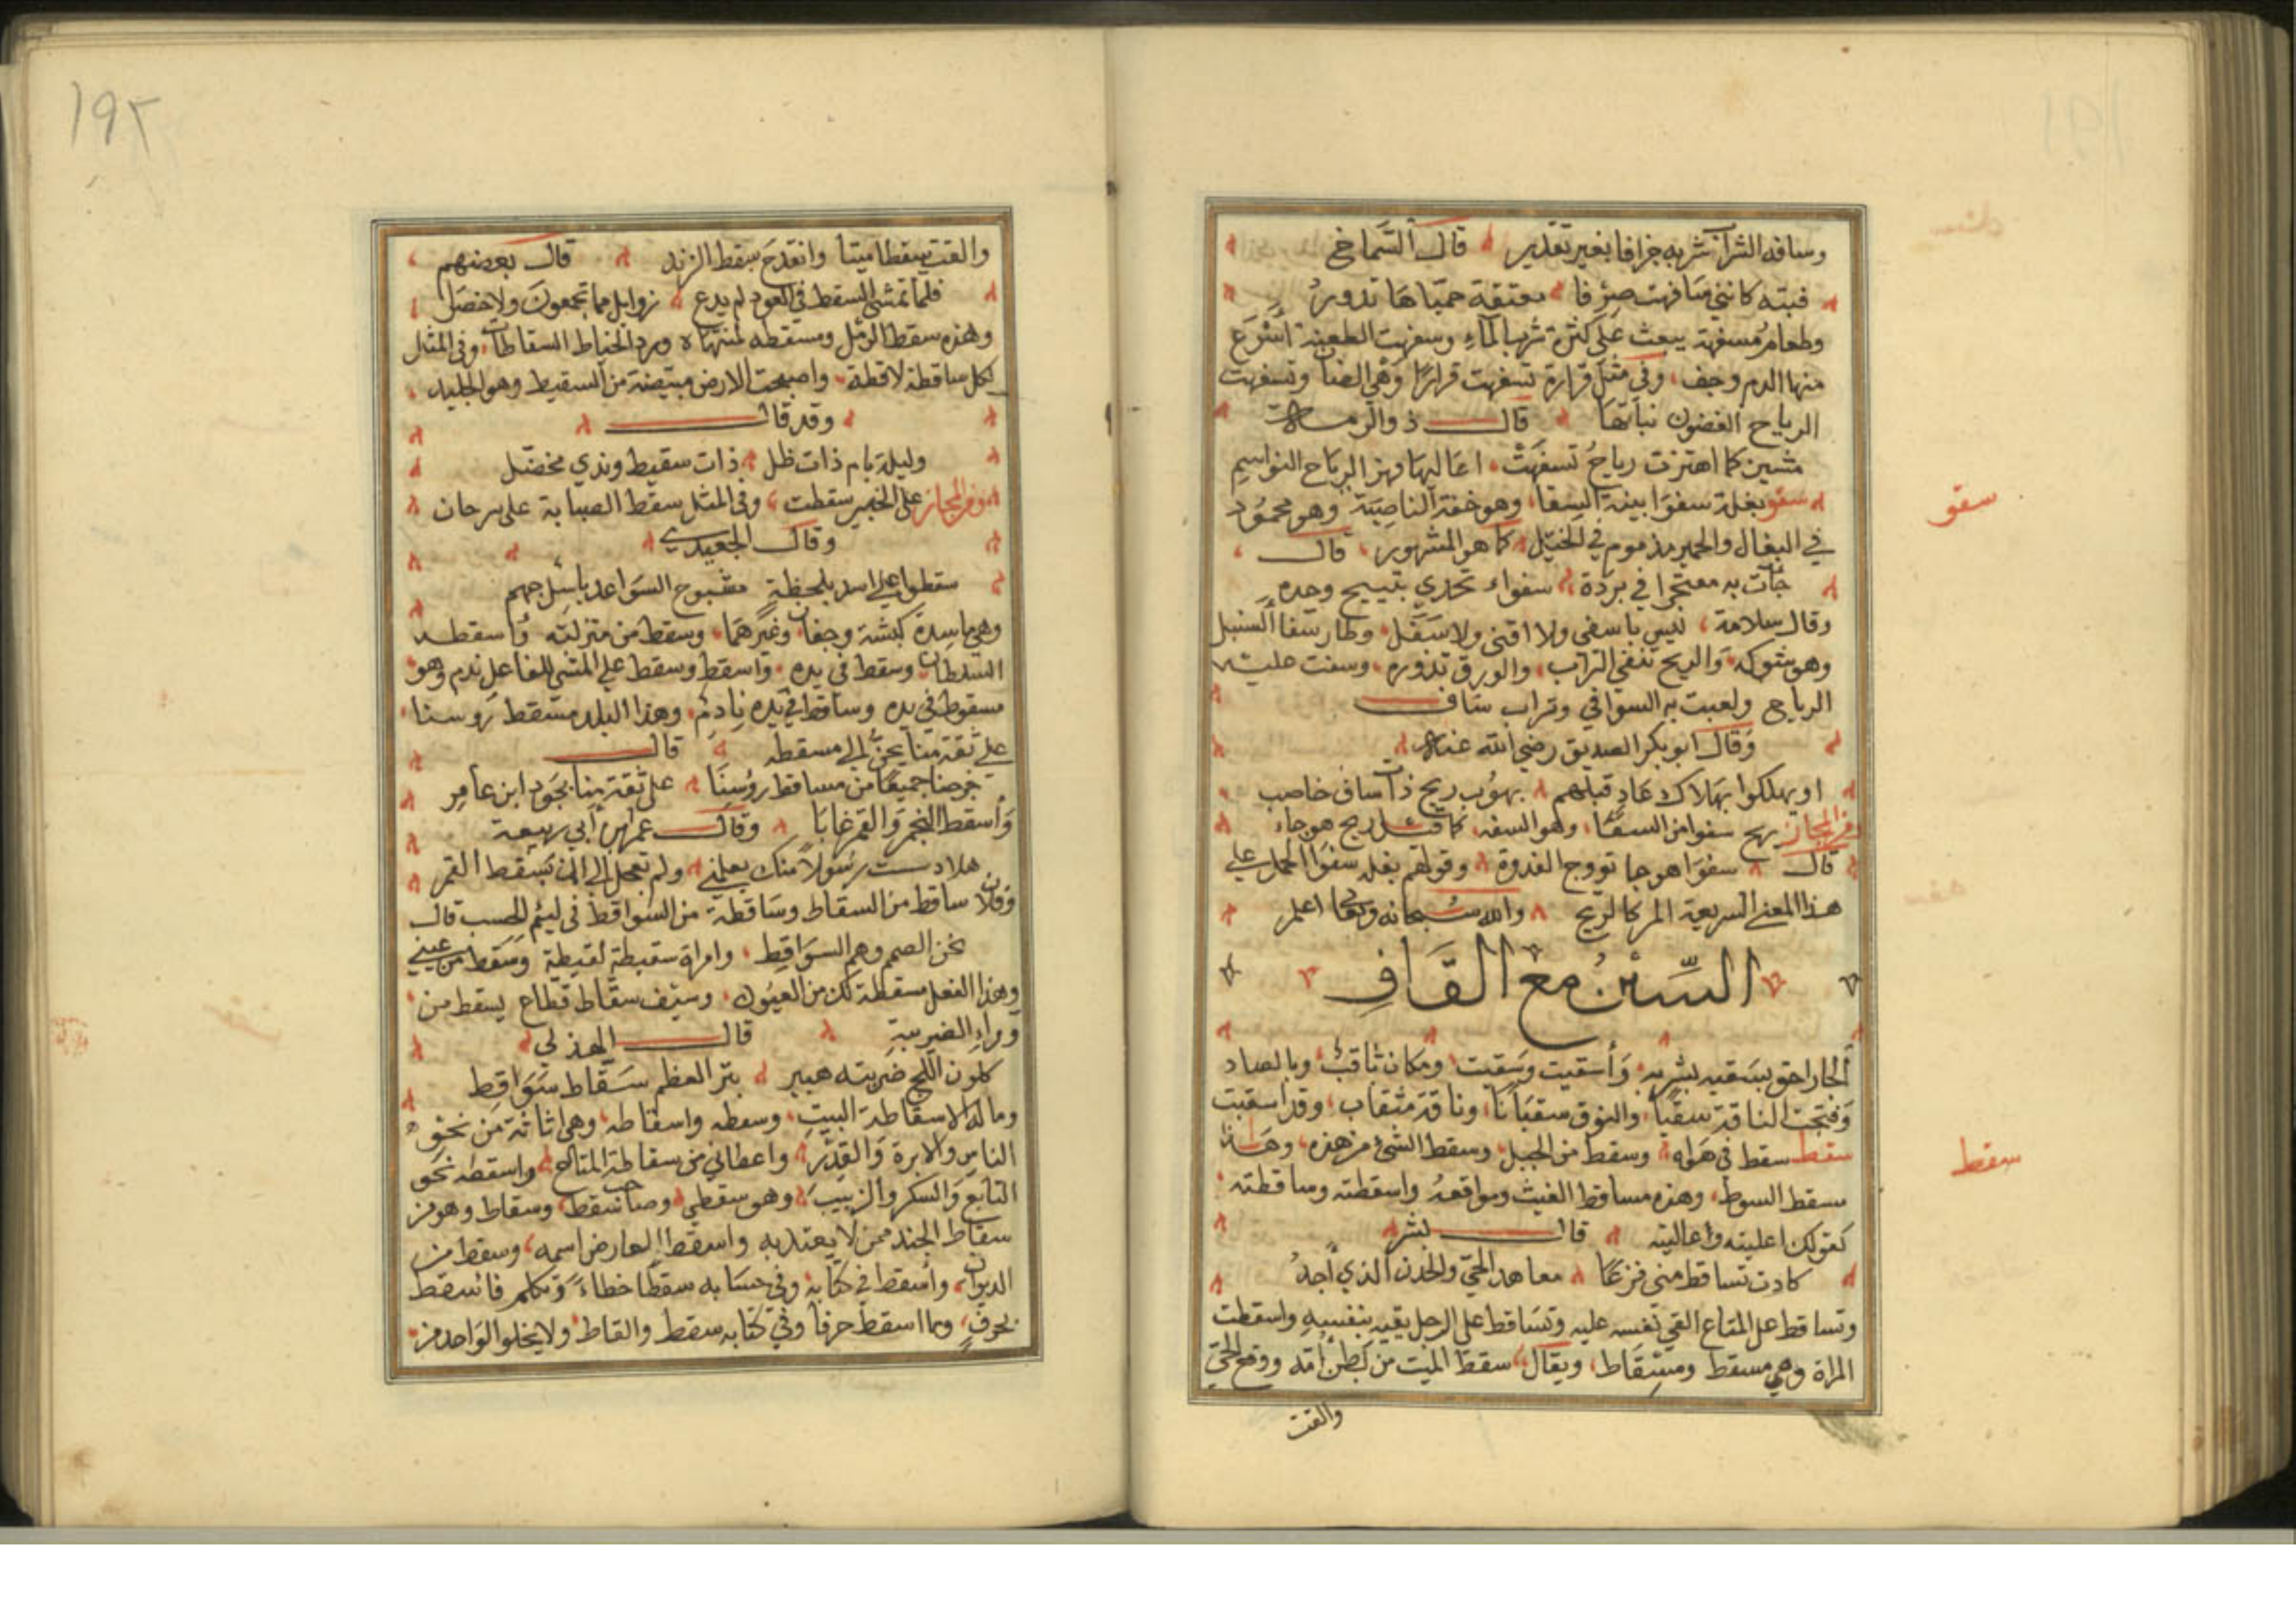 وسافه الشراب شربه جزافا بغير تقدير قال الشماخ
فبته كانني سافهت صرفا معتقة حمياها تدور
وطعام مسفهة يبعث على كثرة شرب الماء وسفهت الطعنة أسرع
منها الدم وجف وفي مثل قرارة تسفهت قرارا وهي الضان وتسفهت
الرياح الغصون نباتها قال ذو الرمة
مشين كما اهتزت رياح تسفهت اعاليها مر الرياح النواسم
سفو بغلة سفوا بينة السفا وهو خفة الناصية وهو محمود
في البغال والحمير مذموم في الخيل كما هو المشهور قال
جآت به معتجرا في بردة سفواء تخدي بنسيج وحده
وقال سلامة ليس باسفى ولا اقنى ولا سغل وطار سفا السنبل
وهو شوكه والريح تسفي التراب والورق تذوره وسفت عليه
الرياح ولعبت به السوافي وتراب ساف
وقال ابو بكر الصديق رضي الله عنه
او يهلكوا بهلاك عاد قبلهم بهبوب ريح ذات ساف حاصب
ومن المجاز ريح سفوا من السفا وهو السفه كما قيل ريح هوجاء
قال سفوا هوجا تووج الغدوة وقولهم بغله سفوا الحمل على
هذا المعنى السريعة المر كالريح والله سبحانه وتعالى اعلم
السين مع القاف
سفو
سقط
الجار احق بسقبه بقربه وأسقبت وسقبت ومكان ثاقب وبالصاد
وفتجت الناقة سقبا والنوق سقبانا وناقة مسقاب وقد اسقبت
سقط سقط في هوله وسقط من الجبل وسقط الشئ من هذه وهذا
مسقط السوط وهذه مساقط الغيث ومواقعه واسقطته وساقطته
كقولك اعليته وعاليته قال بشر
كادت تساقط مني فزعا معاهد الحي والحزن الذي أجد
وتساقط على المتاع القي نفسه عليه وتساقط على الرجل يقيه بنفسه واسقطت
المراة وهي مسقط ومسقاط ويقال سقط الميت من بطن أمه ووقع الحي
والقت
١٩٢
والقت سقطا ميتا وانقدح سقط الزند قال بعضهم
فلما تمشى السقط في العود لم يدع زوابل مما تجمعون ولا خضل
وهذه سقط الرمل ومسقطه لمنتهاه ومرد الخياط السقاطات وفي المثل
لكل ساقطة لاقطة واصبحت الارض مبيضة من السقيط وهو الجليد
وقد قال
وليلة يام ذات ظل ذات سقيط وندي مخضل
ومن المجاز على الخبير سقطت وفي المثل سقط الصبابة على سرحان
وقال الجعيدي
سقطوا على اسد بلحظة مشبوح السواعد باسل جهم
وهي ماسدة كبشة وجفان وغيرهما وسقط من منزلته وأسقطه
السلطان وسقط في يده واسقط وسقط على المشي للفاعل ندم وهو
مسقوط في يده وساقط في يده نادم وهذا البلد مسقط روسنا
على ثقة منا يحن الى مسقطه قال
خرصنا جميعا من مساقط روسنا على ثقة منا بجود ابن عامر
وأسقط النجم والقمر غابا وقال عمر ابن أبي ربيعة
هلا دسست رسولا منك يعلمني ولم تعجل الى الى تسقط القمر
وفلان ساقط من السقاط وساقطة من السواقط في لئيم الحسب قال
نحن الصمم وهم السواقط وامراة سقيطة لقيطة وسقط من عيني
وهذا الفعل مسقطة لك من العيون وسيف سقاط قطاع يسقط من
وراء الضريبة قال الهذلي
كلون الملح ضربته هبير يتر العظم سقاط سواقط
وماله الاسقاطة البيت وسقطه واسقاطه وهي اثاثة من نحو
الناس والابرة والقدر واعطاني من سقاطة المتاع واسقطه نحو
التابع والسكر والزبيب وهو سقطي وصاحب سقط وسقاط وهو من
سقاط الجند ممن لا يعتد به واسقط العارض اسمه وسقط من
الديوان وأسقط في كتابه وفي حسابه سقطا خطاء وتكلم فما سقط
بحرف وما اسقط حرفا وفي كتابه سقط والقاط ولا يخلوا الواحد من